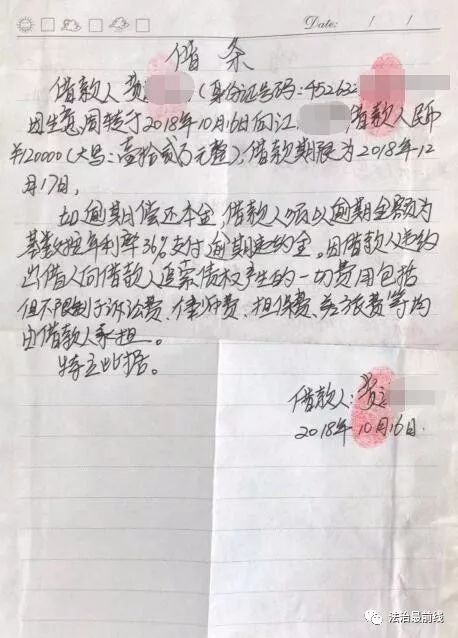 Date: / /
借条
借款人黄 (身份证号码:45262
因生意周转于2018年10月16日向江 借款人民币
¥120000(大写:壹拾贰万元整),借款期限为2018年12
月17日,
如逾期偿还本金,借款人应以逾期金额为
基数按年利率36%支付逾期违约金。因借款人违约
出借人向借款人追索债权产生的一切费用包括
但不限制于诉讼费、律师费、担保费、差旅费等均
由借款人承担。
特立此据。
借款人:黄
2018年10月16日.
法治最前线